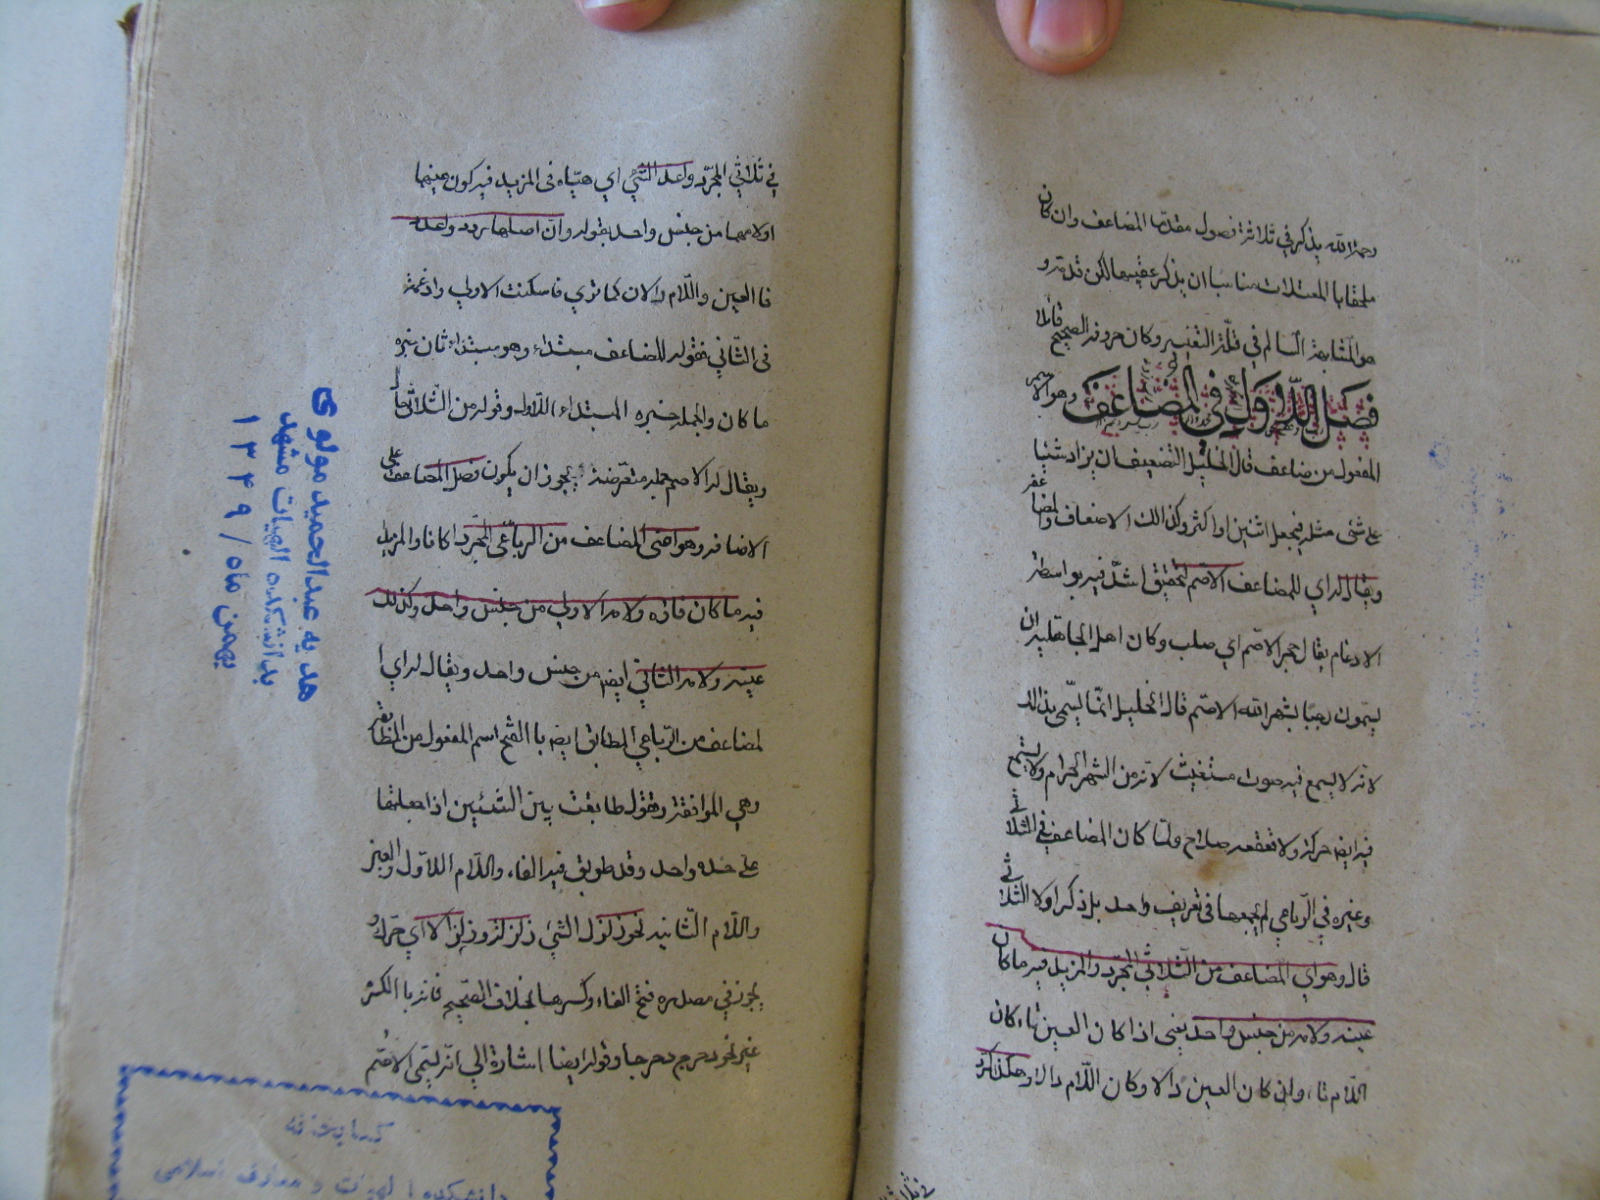 رحمة الله يذكر في ثلاثة فصول مقدما المضاعف وان كان
ملحقا بالمعتلات مناسبا ان يذكر عقيبها لكن قدمه و
هو المشابهة السالم في قلة التغيير وكان حروفه الصحيح قائلا
فصل الاول في المضاعف وهو الاسم
المفعول من ضاعف قال الخليل التضعيف ان يزاد شيئا
على شئ مثله فيجعل اثنين او اكثر وكذالك الاضعاف والمضاعفة
ويقال له اي للمضاعف الاصم لتحقيق الشدّ فيه بواسطة
الادغام يقال حجر الاصم اي صلب وكان اهل الجاهلية ان
يسمون رجبا بشهر الله الاصم قال الخليل انما يسمى بذالك
لانه لا يسمع فيه صوت مستغيث لانه من الشهر الحرام ولا يسمع
فيه ايضا حركة ولا قعقعه سلاح ولما كان المضاعف في الثلاثي
وغيره في الرباعي لم يجمعها في تعريف واحد بل ذكر اولا الثلاثي
قال وهو اي المضاعف من الثلاثي المجرد والمزيد فيه ما كان
عينه ولامه من جنس واحد يعني اذا كان العين تاء كان
اللام تاء وان كان العين دالا وكان اللام دالا وهكذا كرد
في ثلاثي
في ثلاثي المجرد واعد الشئ اي هيّاه في المزيد فيه كون عينهما
ولامهما من جنس واحد بقوله وان اصلهما ردد واعدد
فالعين واللام دالان كما ترى فاسكنت الاولى وادغمت
في الثاني فقوله للمضاعف مبتداء وهو مبتداء ثان خبره
ما كان والجملة خبره المبتداء الاول وقوله من الثلاثي حال
ويقال له الاصم جملة معترضة يجوز ان يكون فصل المضاعف على
الاضافه وهو اي المضاعف من الرباعي المجرد كانا والمزيد
فيه ما كان فاؤه ولامه الاولى من جنس واحد وكذلك
عينه ولامه الثاني ايضا من جنس واحد ويقال له اي ا
لمضاعف من الرباعي المطابق ايضا بالفتح اسم المفعول من المطابقة
وهي الموافقة وتقول طابقت بين الشيئين اذا جعلتهما
على حده واحد وقد طوبق فيه الفاء واللام الاول والعين
واللام الثانيه نحو زلزل الشئ زلزلة وزلزالا اي حركه و
يجوز في مصدره فتح الفاء وكسرها بخلاف الصحيح فانه بالكسر
غير نحو دحرج دحرجا وقوله ايضا اشارة الى انه يسمى الاصم
هدیه عبدالحمید مولوی
بدانشکده الهیات مشهد
بهمن ماه / ۱۳۴۹
کتابخانه
دانشکده الهیات و معارف اسلامی